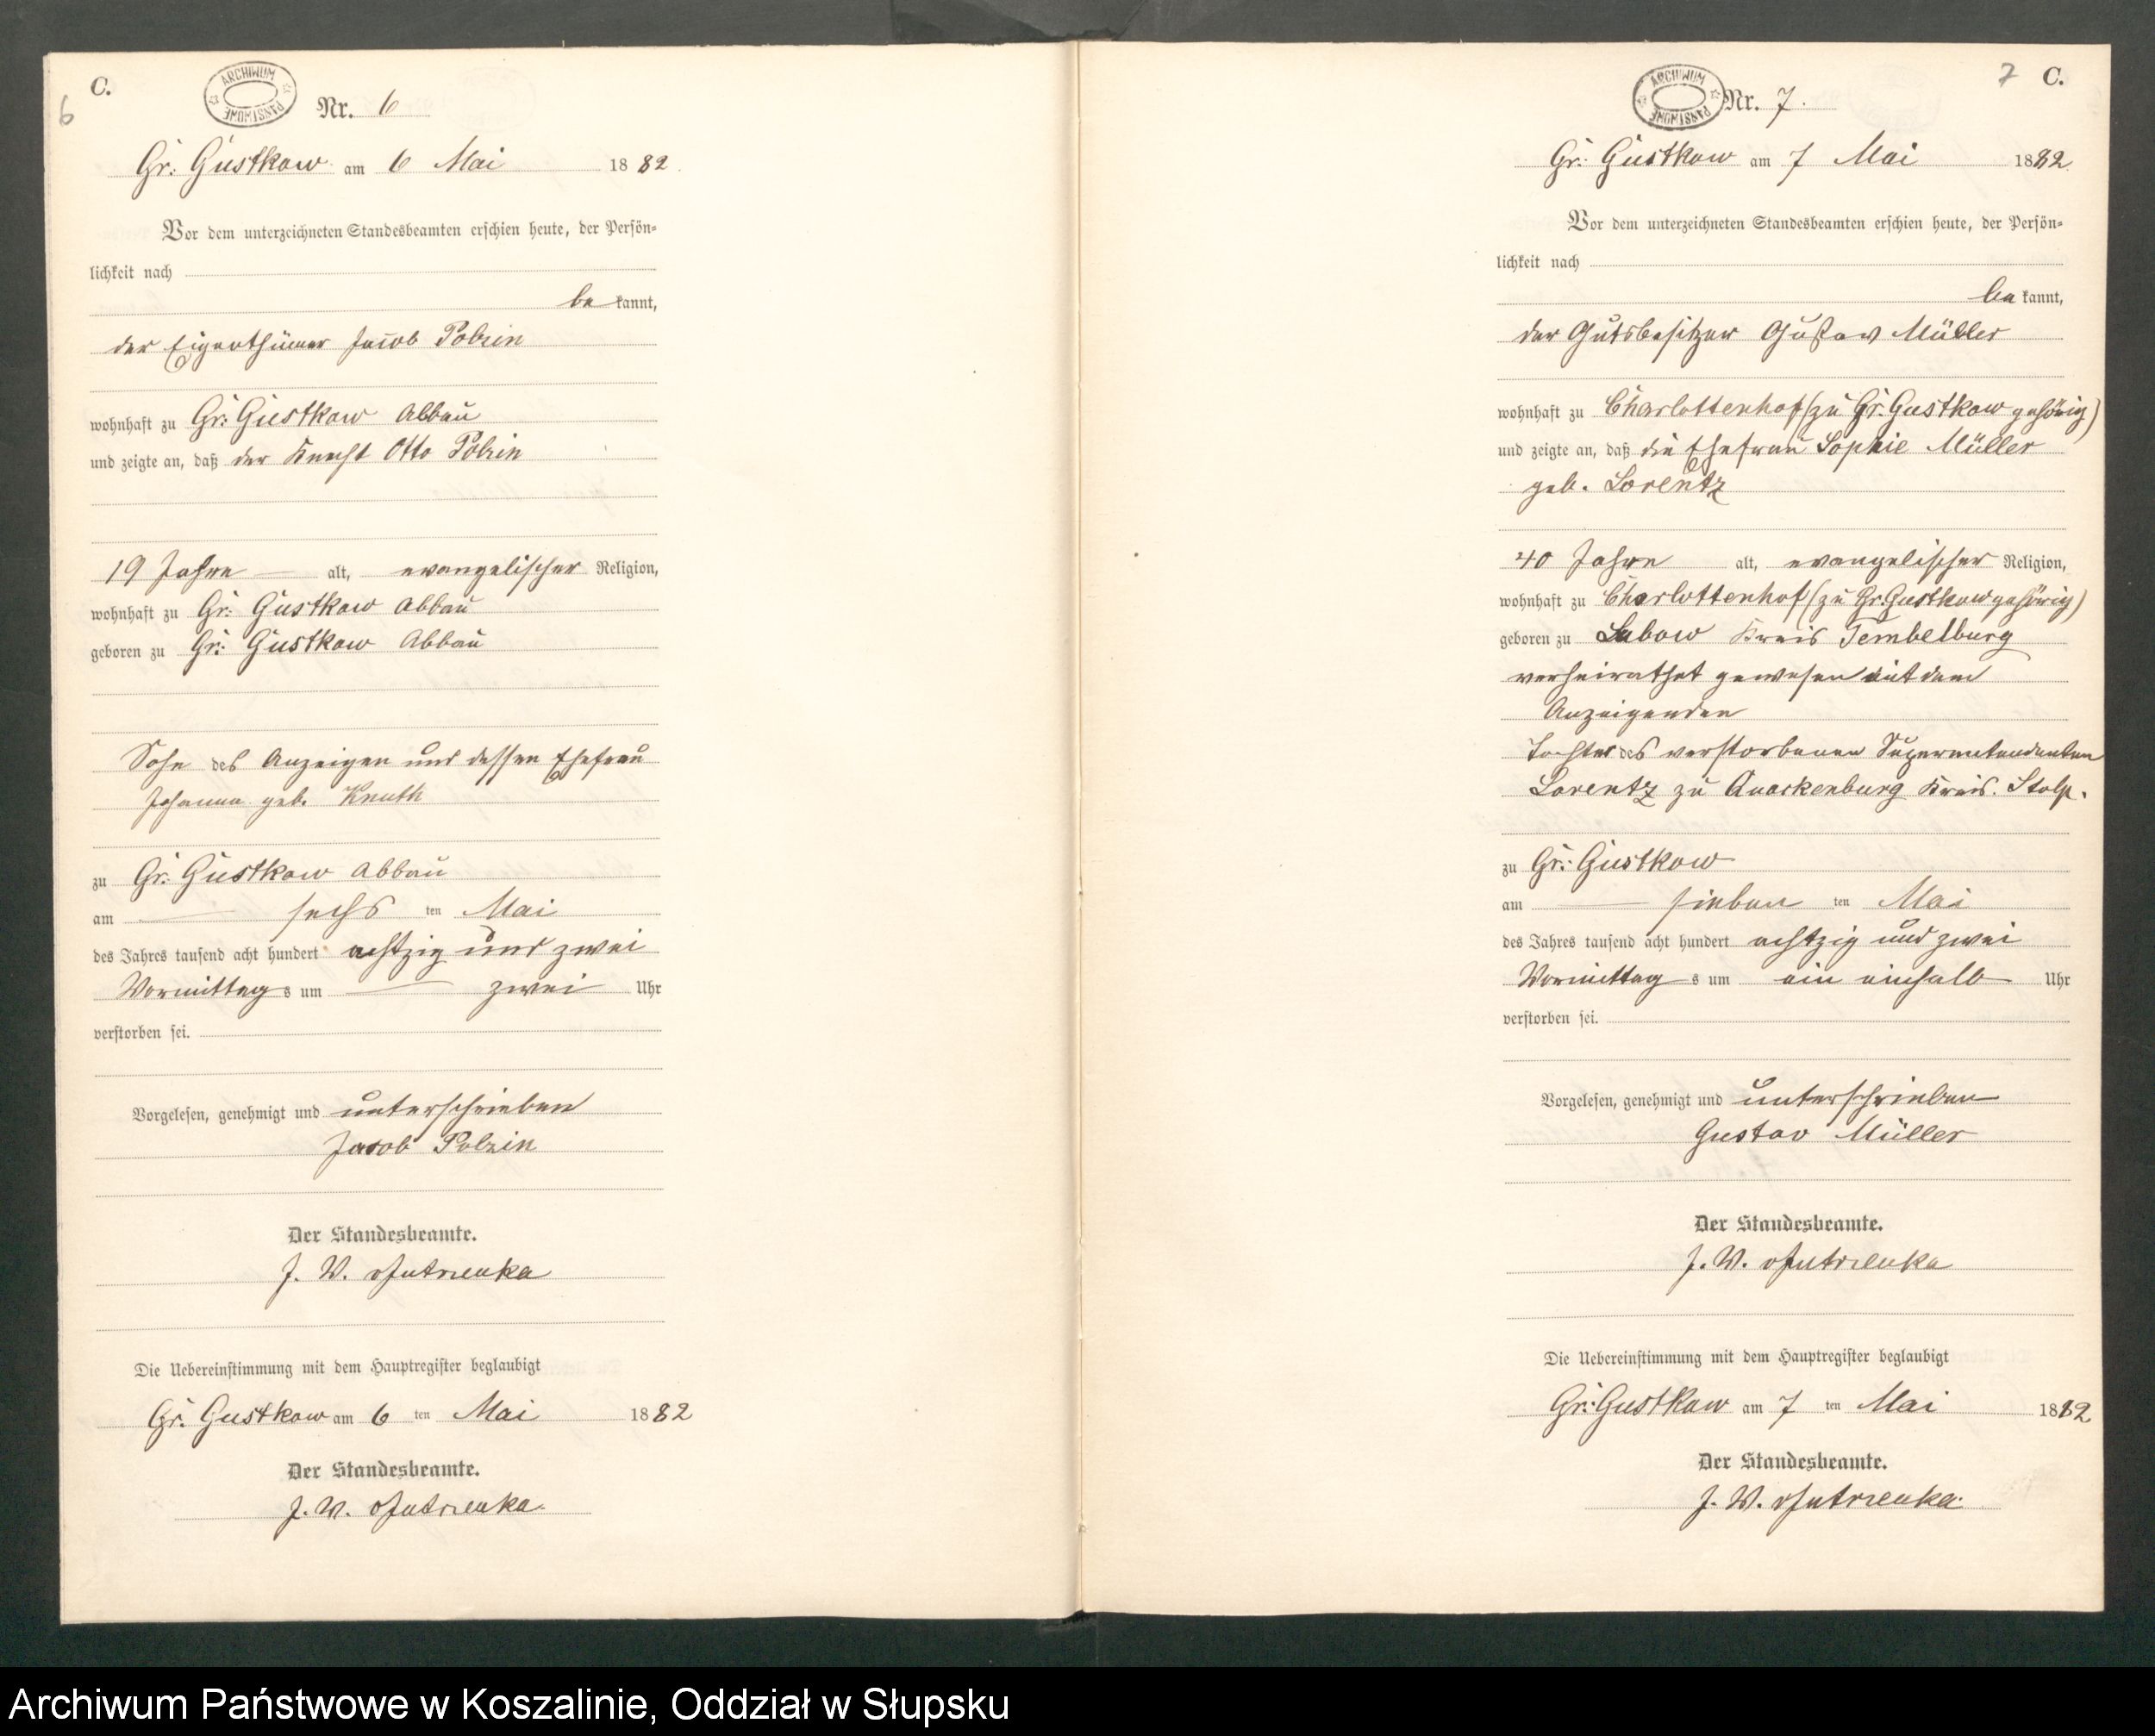 C.
6
ARCHIWUM PAŃSTWOWE
Nr. 6
Gr. Gustkow am 6 Mai 1882.
Vor dem unterzeichneten Standesbeamten erschien heute, der Persön-
lichkeit nach
be kannt,
der Eigenthümer Jacob Polzin
wohnhaft zu Gr. Gustkow Abbau
und zeigte an, daß der Knecht Otto Polzin
19 Jahre alt, evangelischer Religion,
wohnhaft zu Gr. Gustkow Abbau
geboren zu Gr. Gustkow Abbau
Sohn des Anzeigen und dessen Ehefrau
Johanna geb. Knuth
zu Gr. Gustkow Abbau
am sechs ten Mai
des Jahres tausend acht hundert achtzig und zwei
Vormittag s um zwei Uhr
verstorben sei.
Vorgelesen, genehmigt und unterschrieben
Jacob Polzin
Der Standesbeamte.
J. W.
Die Uebereinstimmung mit dem Hauptregister beglaubigt
Gr. Gustkow am 6 ten Mai 1882
Der Standesbeamte.
J. W.
7 C.
ARCHIWUM PAŃSTWOWE
Nr. 7.
Gr. Gustkow am 7 Mai 1882.
Vor dem unterzeichneten Standesbeamten erschien heute, der Persön-
lichkeit nach
be kannt,
der Gutsbesitzer Gustav Müller
wohnhaft zu Charlottenhof (zu Gr. Gustkow gehörig)
und zeigte an, daß die Ehefrau Sophie Müller
geb. Lorentz
40 Jahre alt, evangelischer Religion,
wohnhaft zu Charlottenhof (zu Gr. Gustkow gehörig)
geboren zu Lubow Kreis Tembelburg
verheirathet gewesen mit dem
Anzeigenden
Tochter des verstorbenen Superintendenten
Lorentz zu Quackenburg Kreis. Stolp.
zu Gr. Gustkow
am sieben ten Mai
des Jahres tausend acht hundert achtzig und zwei
Vormittag s um ein einhalb Uhr
verstorben sei.
Vorgelesen, genehmigt und unterschrieben
Gustav Müller
Der Standesbeamte.
J. W.
Die Uebereinstimmung mit dem Hauptregister beglaubigt
Gr. Gustkow am 7 ten Mai 1882
Der Standesbeamte.
J. W.
Archiwum Państwowe w Koszalinie, Oddział w Słupsku